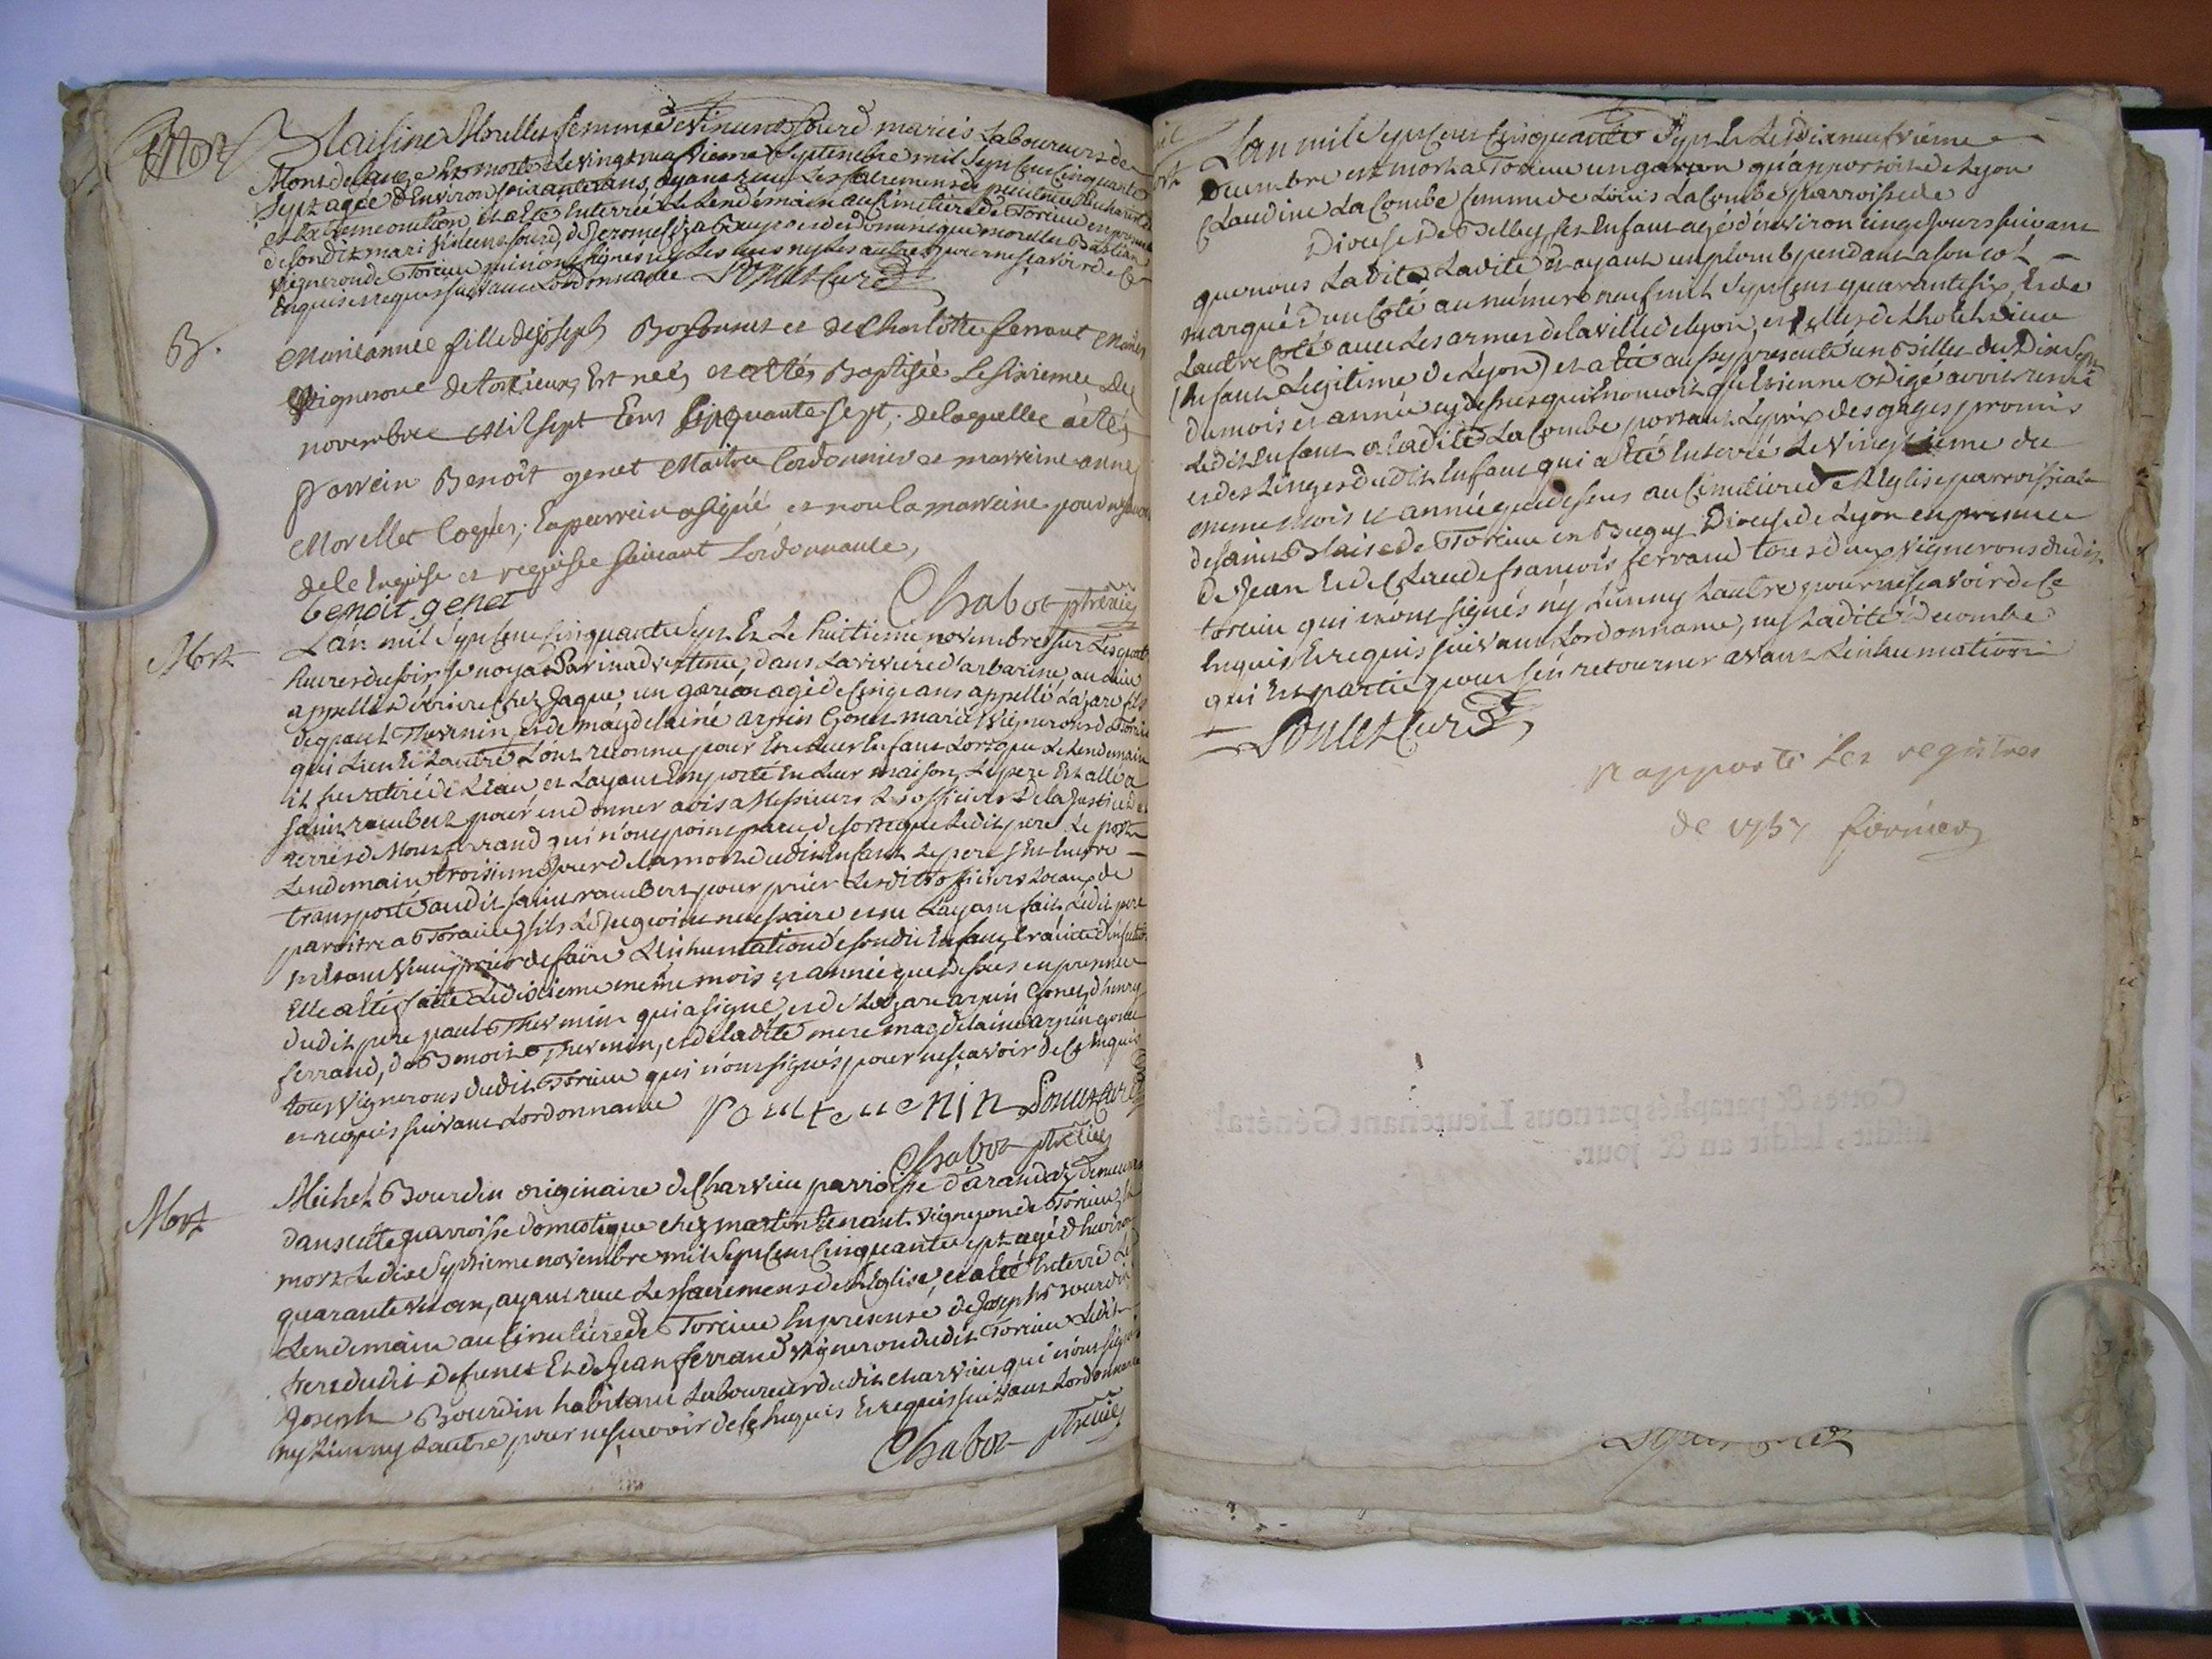 Mort
Claudine Morellet femme de Vincent sourd mariés Laboureurs de
Mont de lange Est morte Le vingt neufvieme Septembre mil Sept Cent Cinquante
Sept agée d'Environ soixante ans, ayant reçu Les sacremens de penitence
et Extreme onction et a Eté Enterrée Le Lendemain au Cimetiere de Torcieu en presence
de sondit mari Vincent sourd, de et de Dominique morellet
vigneron de Torcieu qui n'ont signés ny Les uns ny Les autres pour ne sçavoir de Ce
Enquis et requis suivant Lordonnance Ponset Curé
B.
Marie annee fille de joseph et de Charlotte ferrant Mariés
Vigneront de torcieux, Est neé, et a étés Baptisée Le sixiemee De
novembree Mil sept Cens Cinquante sept, de laquellee a étés
Parrein Benoît genet Maitre Cordonnier et marreine anne
Morellet ; Le parrein a signé et non la marreine pour ne
de le Enquise et requise suivant Lordonnance,
benoit genet
Chabot
Mort
Lan mil Sept Cent Cinquante Sept Et Le huitieme novembre sur Les quatre
heures du soir se noya Par inadvertence, dans La riviere d'arbarine, au Lieu
appellé chez Jaque, un garçon agé de Cinq ans appellé Lazare fils
de paul Thevenin, et de magdelaine arpin Gonet mariés Vignerons de Torcieu
qui L'un Et Lautre Lont reconnu pour Etre Leur Enfant Lorsque Le Lendemain
il fut retiré de Leau et Layant Emporté En Leur maison, Le pere Est allé a
saint rambert pour en donner avis a Messieurs Les officiers de la Justice de
terres de Montferrand qui n'ont point paru de sorte que Ledit pere Le
Lendemain troisieme Jour de la mort dudit Enfant Le pere s'Est Encore
transporté audit saint rambert pour prier Lesdits officiers Locaux de
paroitre a Torcieu, s'ils Le Jugeoient necessaire et ne Layant fait Ledit pere
venu prier de faire L'inhumation de sondit Enfant,
Elle a Eté faite Le dixieme meme mois et année que dessus en presence
dudit pere paul Thevenin qui a signé, et de Lazare arpin Gonet, d'henry
ferrand, de Benoit Thevenin, et de ladite mere magdelaine arpin gonet
tous Vignerons dudit Torcieu qui n'ont signés pour ne sçavoir de Ce Enquis
et requis suivant Lordonnance Poul te ue nin Ponset Curé
Chabot
Mort
Michel Bourdin originaire de Charvieu parroisse d'arandaz, demeurant
dans cette parroisse domestique chez martin tenant vigneron de Torcieu
mort Le dix Septieme novembre mil Sept Cent Cinquante sept agé d'Environ
quarante un an, ayant reçu Les sacremens de L'Eglise, et a Eté Enterré Le
Lendemain au Cimetiere de Torcieu En presence de Joseph Bourdin
frere dudit defunct Et de Jean ferrand Vigneron dudit Torcieu Ledit
Joseph Bourdin habitant Laboureur dudit charvieu qui n'ont signés
ny L'un ny Lautre pour ne sçavoir de Ce Enquis Et requis suivant Lordonnance
Chabot
Lan mil Sept Cent Cinquante Sept Et Le dix neufvieme
Decembre est mort a Torcieu un garçon qu'apportoit de Lyon
Claudine La Combe femme de Loüis La Combe parroisse de
Diocese de Belley, cet Enfant agé d'environ cinq Jours suivant
que nous La dit Ladite et ayant un plomb pendant a son col
marqué d'un Coté au numero neuf mil Sept Cent quarante six, Et de
Lautre Coté avec Les armes de la ville de Lyon, et Celles de L'hotel dieu
(Enfant Legitime de Lyon) et a Eté aussy presenté un Billet du Dix Sept
du mois et année cy dessus qui Enonçoit qu'Etienne avoit remis
Ledit Enfant a Ladite La Combe portant Le prix des gages promis
et des Linges dudit Enfant qui a Eté Enterré Le Vingtieme du
meme mois et année que dessus au Cimetiere de L'Eglise parroissiale
de saint Blaise de Torcieu en Bugey Diocese de Lyon en presence
de Jean Et de Claude françois ferrand tous deux Vignerons dudit
torcieu qui n'ont signés ny L'un ny Lautre pour ne sçavoir de Ce
Enquis Et requis suivant Lordonnance, ny Ladite Lacombe
qui Est partie pour s'en retourner avant L'inhumation
Ponset Curé
Rapporté Les registres
de 1757
Cotté & paraphés par nous Lieutenant Général
susdit, ledit an & jour.